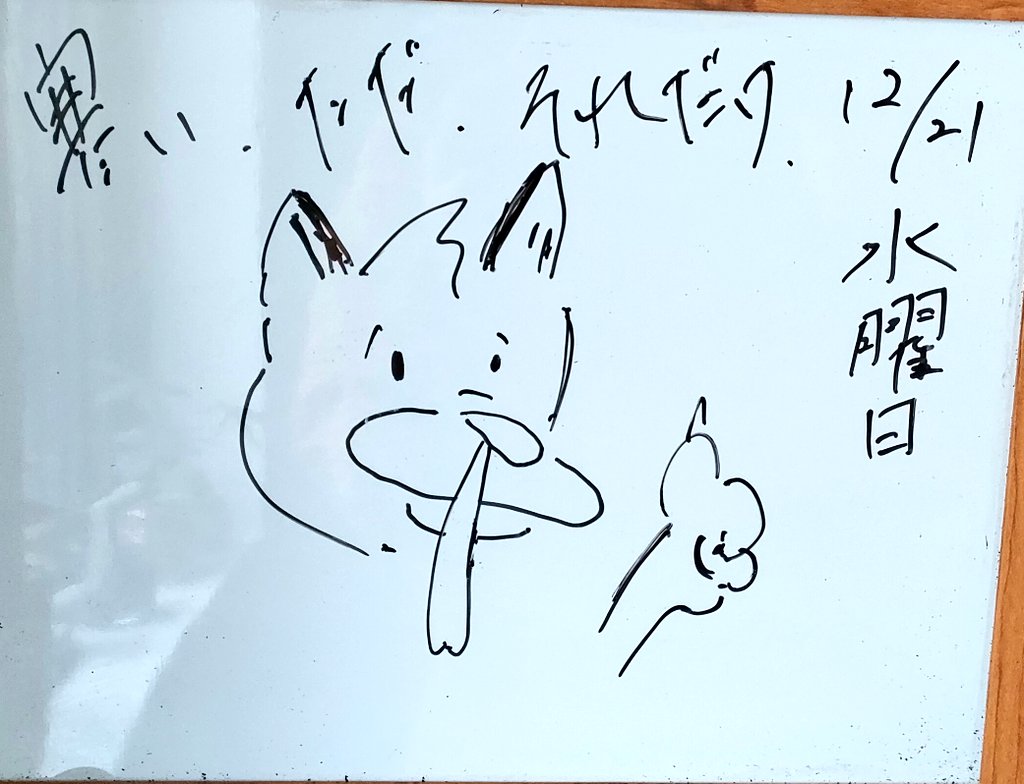 寒い.ただ.それだけ.
12/21
水
曜
日